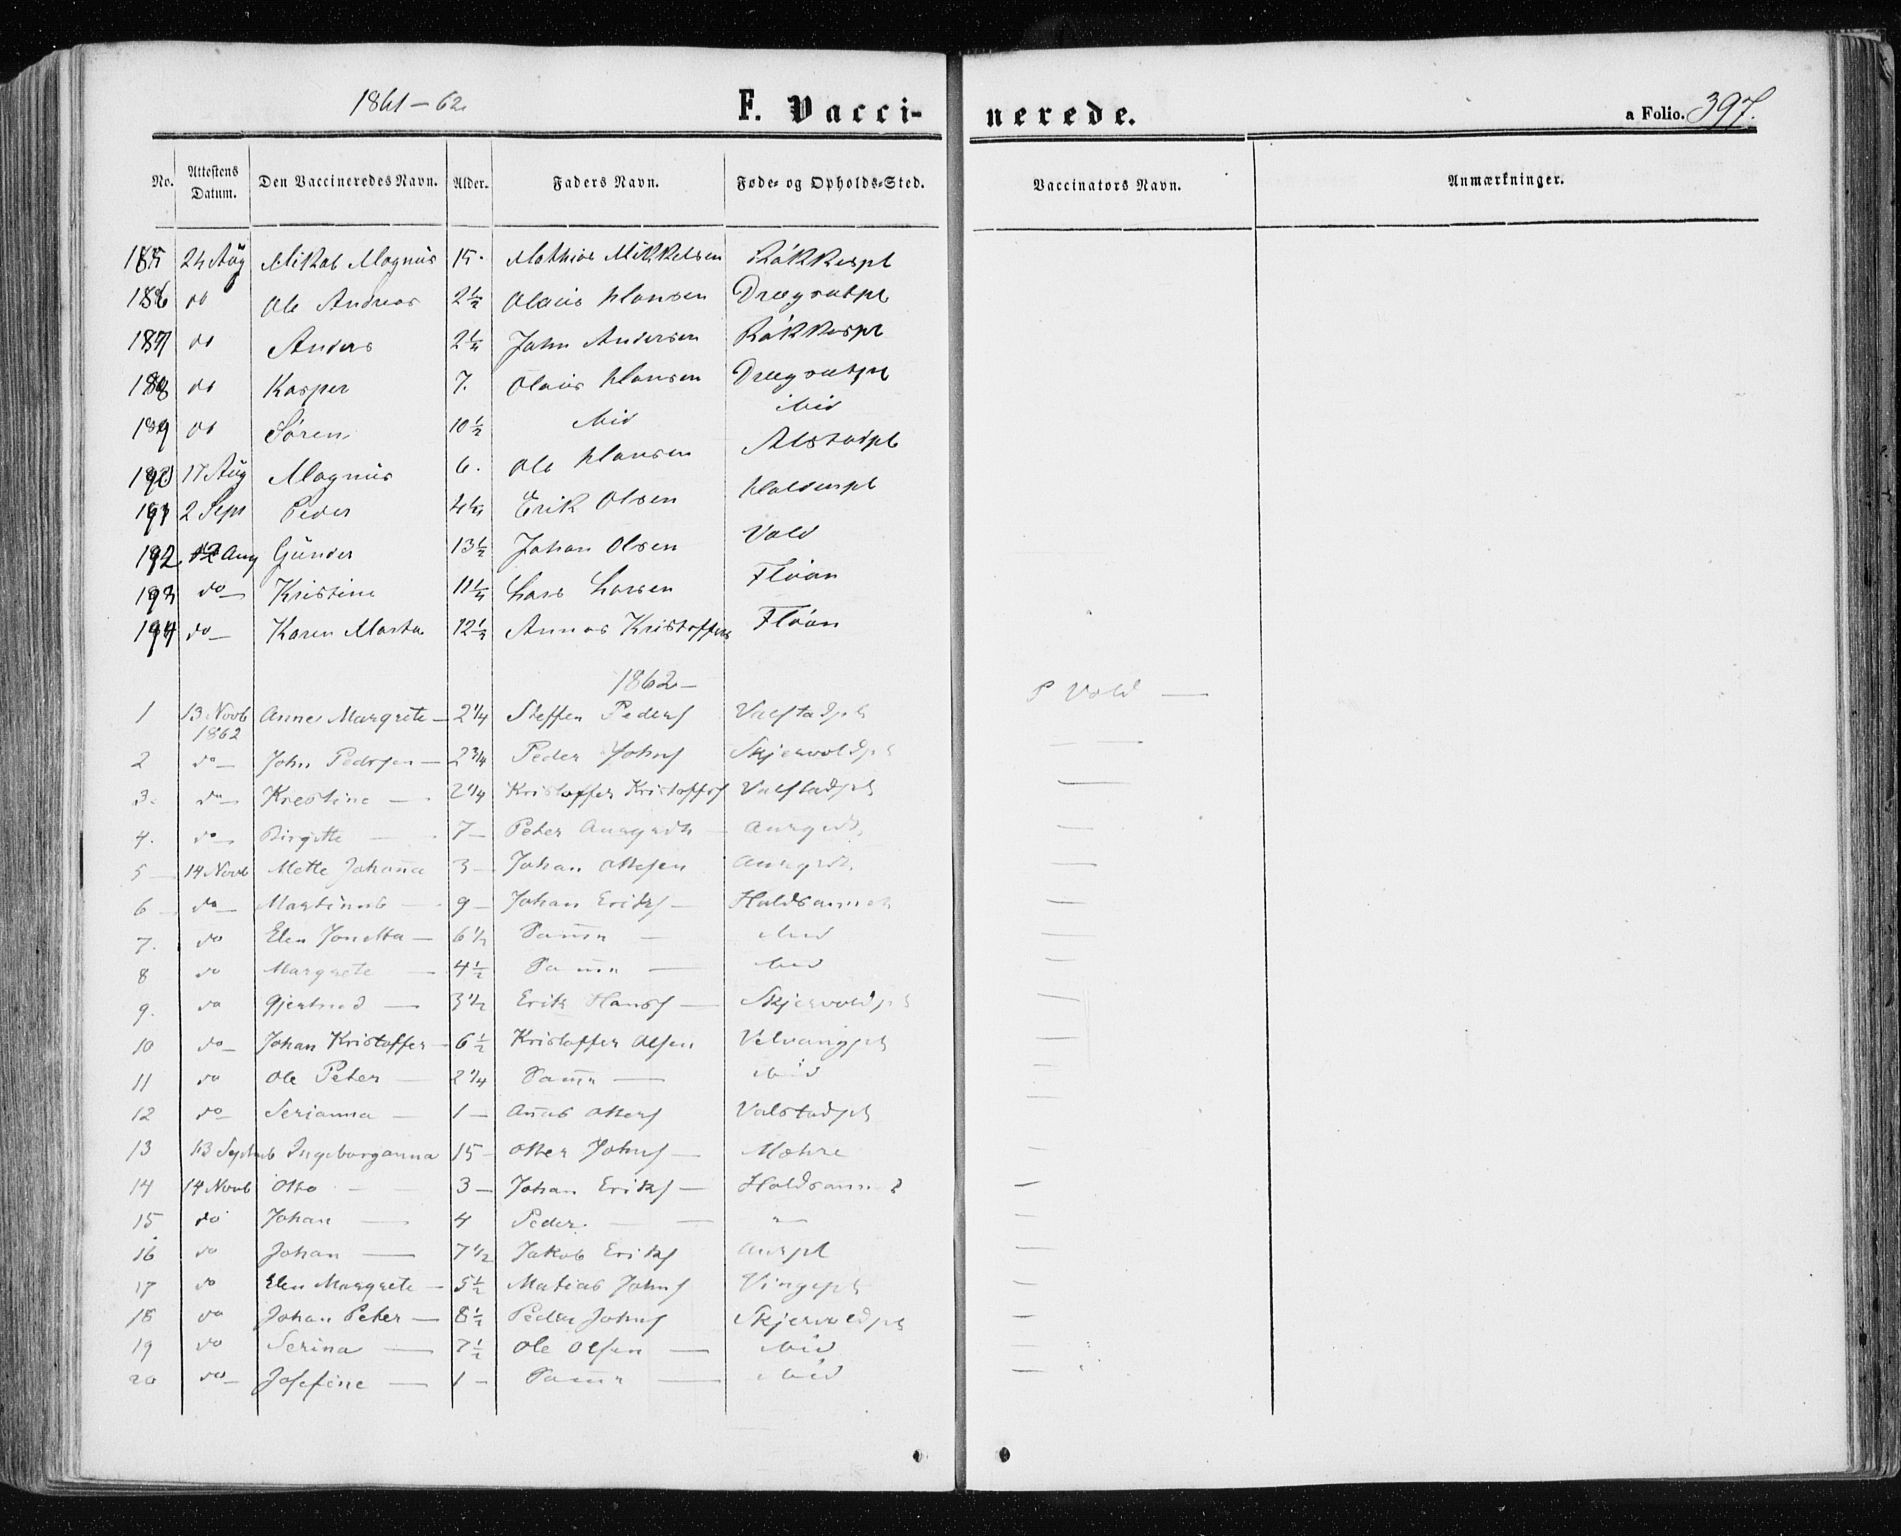 1861-62
F. Vacci-
nerede.
a Folio. 397.
No. Attestens Datum. Den Vaccineredes Navn. Alder. Faders Navn. Føde- og Opholds-Sted. Vaccinators Navn. Anmærkninger.
185 24 Aug Mikal Magnus 15. Mathias Mikkelsen Røkkespl
186 do Ole Andreas 2½ Olaus Hansen Drægsætpl
187 do Anders John Andersen Røkkespl
188 do Kasper 7. Olaus Hansen Drægsætpl
189 do Søren 10½ ibid ibid
190 17 Aug Magnus 6. Ole Hansen Alstadpl
191 2 Sept Peder Erik Olsen
192 12 Aug Gunder 13½ Johan Olsen Vold
193 do Kristine Lars Larsen Fløan
194 do Karen Marta 12½ Annas Kristoffers Fløan
1862-
1 13 Novb 1862 Anne Margrete - 2¼ Steffen Peders Valstadpl P Vold -
2 do John Pedersen - 2¾ Peder Johns Skjervoldpl -
3. do Krestine - 2¼ Kristoffer Kristoffs Valstadpl -
4. do Birgitte - 7 - Peter -
5 14 Novb Mette Johanna 3 - Johan Ottesen -
6 do Martinus - 9 - Johan Eriks - -
7. do Elen Jonetta - 6½ Samme - ibid -
8 do Margrete - 4½ Samme - ibid -
9. do Gjertrud - 3½ Erik Hans - Skjervoldpl -
10 do Johan Kristoffer - 6½ Kristoffer Olsen Velvangpl -
11 do Ole Peter - 2¼ Samme - ibid -
12 do Serianna - 1 - Annas Otters Valstadpl -
13 13 Septemb Ingeborganna 15 - Otter Johns - Mæhre -
14 14 Novb Otto - 3 - Johan Eriks - -
15 do Johan - 4 Peder - - -
16 do Johan - 7½ Jakob Eriks Aunpl -
17 do Elen Margrete - 5½ Matias Johns Vingepl -
18 do Johan Peter - 8½ Peder Johns Skjervoldpl -
19 do Serina - 7½ Ole Olsen - ibid -
20 do Josefine - 1 - Samme - ibid -